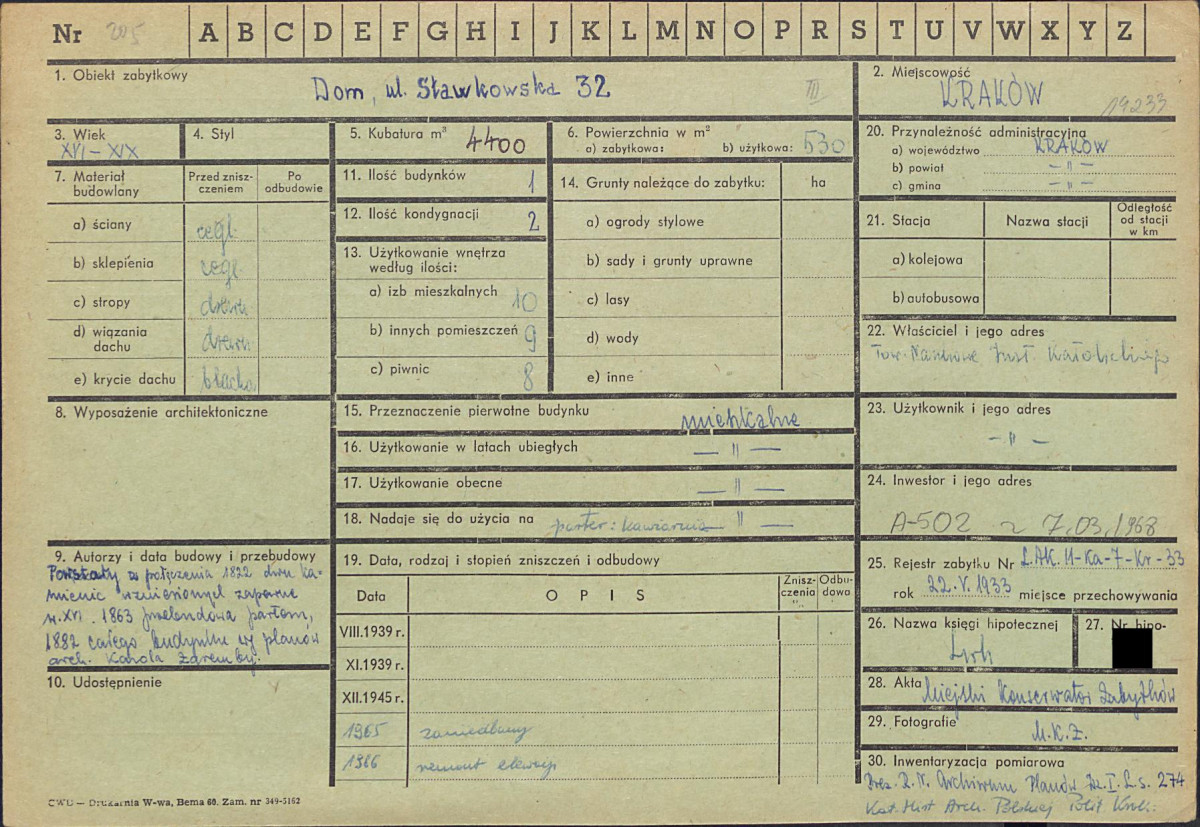 Nr 205 A B C D E F G H I J K L M N O P R S T U V W X Y Z
1. Obiekt zabytkowy
Dom, ul. Sławkowska 32 III
2. Miejscowość
KRAKÓW 19233
3. Wiek
XVI – XIX
4. Styl
5. Kubatura m³ 4400
6. Powierzchnia w m²
a) zabytkowa: b) użytkowa: 530
7. Materiał budowlany
Przed zniszczeniem
Po odbudowie
a) ściany cegł.
b) sklepienia cegł.
c) stropy drewn
d) wiązania dachu drewn
e) krycie dachu blacha
8. Wyposażenie architektoniczne
9. Autorzy i data budowy i przebudowy
Powstały z połączenia 1822 dwu ka-
mienic wzniesionych zapewne
w. XVI. 1863 przebudowa parteru,
1882 całego budynku wg planów
arch. Karola Zaremby.
10. Udostępnienie
11. Ilość budynków 1
12. Ilość kondygnacji 2
13. Użytkowanie wnętrza
według ilości:
a) izb mieszkalnych 10
b) innych pomieszczeń 9
c) piwnic 8
14. Grunty należące do zabytku: ha
a) ogrody stylowe
b) sady i grunty uprawne
c) lasy
d) wody
e) inne
15. Przeznaczenie pierwotne budynku mieszkalne
16. Użytkowanie w latach ubiegłych — " —
17. Użytkowanie obecne — " —
18. Nadaje się do użycia na parter: kawiarnia " —
19. Data, rodzaj i stopień zniszczeń i odbudowy
Data OPIS Zniszczenia "„ Odbudowa
VIII.1939 r.
XI.1939 r.
XII.1945 r.
1965 zaniedbany
1986 remont elewacji
20. Przynależność administracyjna
a) województwo KRAKÓW
b) powiat — " —
c) gmina — " —
21. Stacja Nazwa stacji Odległość od stacji w km
a) kolejowa
b) autobusowa
22. Właściciel i jego adres
Tow. Naukowe Inst. Katolickiego
23. Użytkownik i jego adres
— " —
24. Inwestor i jego adres
A-502 z 7.03.1968
25. Rejestr zabytku Nr L.AK. II-Ka-7-Kr-33
rok 22.V.1933 miejsce przechowywania
26. Nazwa księgi hipotecznej
Lwh
27. Nr hipo-
28. Akta Miejski Konserwator Zabytków
29. Fotografie M.K.Z.
30. Inwentaryzacja pomiarowa
Prez. R.N. Archiwum Planów Dz. I. L.s. 274
Kat. Hist Arch. Polskiej Polit Krak.
CWD — Drukarnia W-wa, Bema 60. Zam. nr 349-5162